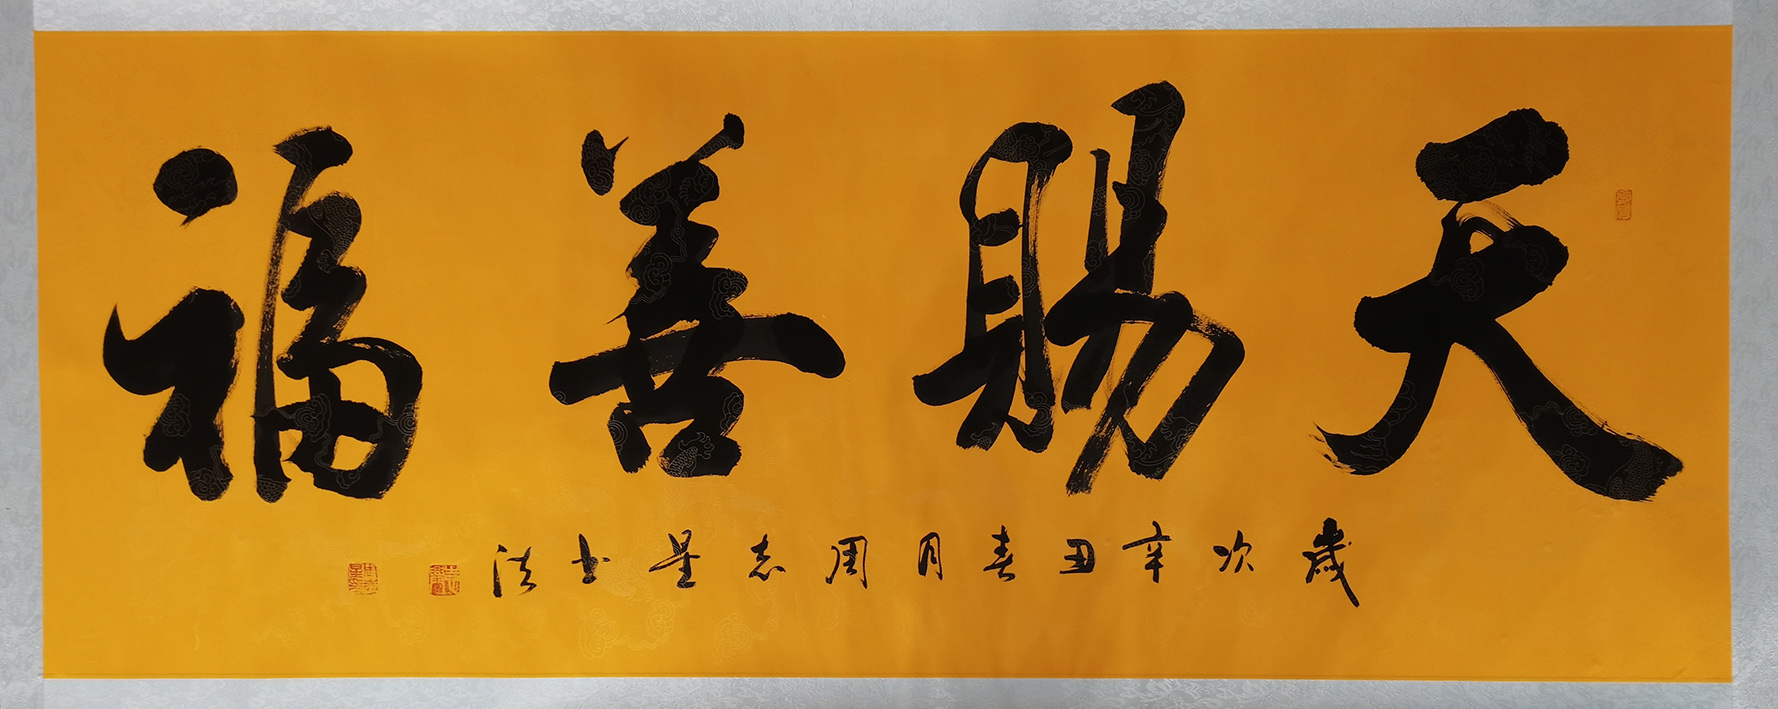 天赐善福
歲次辛丑春月周志星书法